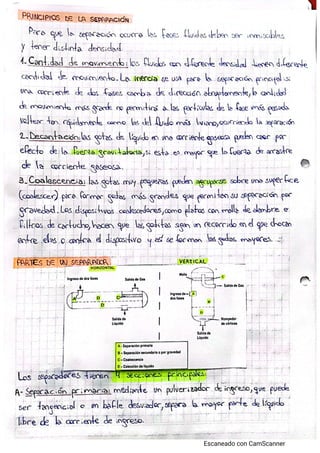 PRINCIPIOS DE LA SEPARACIÓN
Para que la separación ocurra las fases fluidas deben ser inmiscibles
y tener distinta densidad.
1. Cantidad de movimiento: los fluidos con diferente densidad tienen diferente
cantidad de movimiento. La inercia se usa para la separación principal: si
una corriente de dos fases cambia de dirección abruptamente, la cantidad
de movimiento más grande no permitirá a las partículas de la fase más pesada
voltear tan rápidamente como las del fluido más liviano, ocurriendo la separación
2. Decantación: las gotas de líquido en una corriente gaseosa pueden caer por
efecto de la fuerza gravitatoria, si esta es mayor que la fuerza de arrastre
de la corriente gaseosa.
3. Coalescencia: las gotas muy pequeñas pueden agruparse sobre una superficie
(coalescer) para formar gotas más grandes que permiten su separación por
gravedad. Los dispositivos coalescedores, como platos con malla de alambre o
filtros de cartucho, hacen que las gotitas sigan un recorrido en el que chocan
entre ellas o contra el dispositivo y así se forman las gotas mayores.
PARTES DE UN SEPARADOR
HORIZONTAL
VERTICAL
Ingreso de dos fases
Salida de Gas
Salida de
Líquido
Malla
Salida de Gas
Ingreso de
dos fases
Rompedor
de vórtices
Salida de
Líquido
A
B
C
D
A - Separación primaria
B - Separación secundaria o por gravedad
C - Coalescencia
D - Colección de líquido
Los separadores tienen 4 secciones principales:
A- Separación primaria: mediante un pulverizador de ingreso, que puede
ser tangencial o un bafle desviador, separa la mayor parte de líquido
libre de la corriente de ingreso.
Escaneado con CamScanner